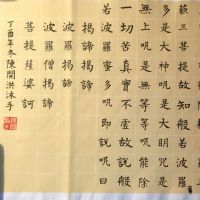 藐三菩提故知般若波羅
多是大神呪是大明呪是
無上呪是無等等呪能除
一切苦真實不虛故說般
若波羅蜜多呪即說呪曰
揭諦揭諦
波羅揭諦
波羅僧揭諦
菩提薩婆訶
丁酉年冬陳開洪沐手